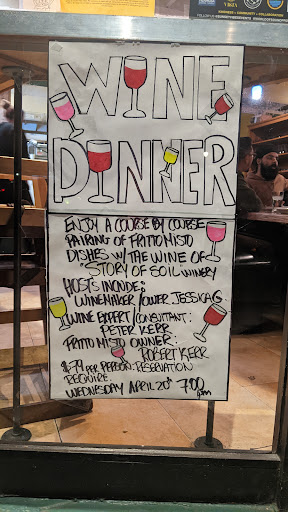 WINE
DINNER
ENJOY A COURSE BY COURSE
PAIRING OF FRITTO MISTO
DISHES W/ THE WINE OF
"STORY OF SOIL WINERY
HOSTS INCLUDE:
WINEMAKER/OWER JESSICA G
WINE EXPERT/CONSULTANT:
PETER KERR
FRITTO MISTO OWNER:
ROBERT KERR
$79 PER PERSON: RESERVATION
REQUIRE
WEDNESDAY APRIL 20th 7:00
pm